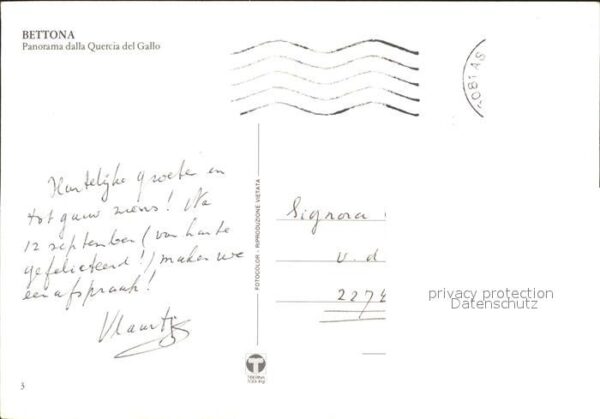 BETTONA
Panorama dalla Quercia del Gallo
Hartelijke groeten en
tot gauw ziens! Na
12 september (van harte
gefeliciteerd!) maken we
een afspraak!
FOTOCOLOR - RIPRODUZIONE VIETATA
Signora
v. d
2274
privacy protection
Datenschutz
T
3